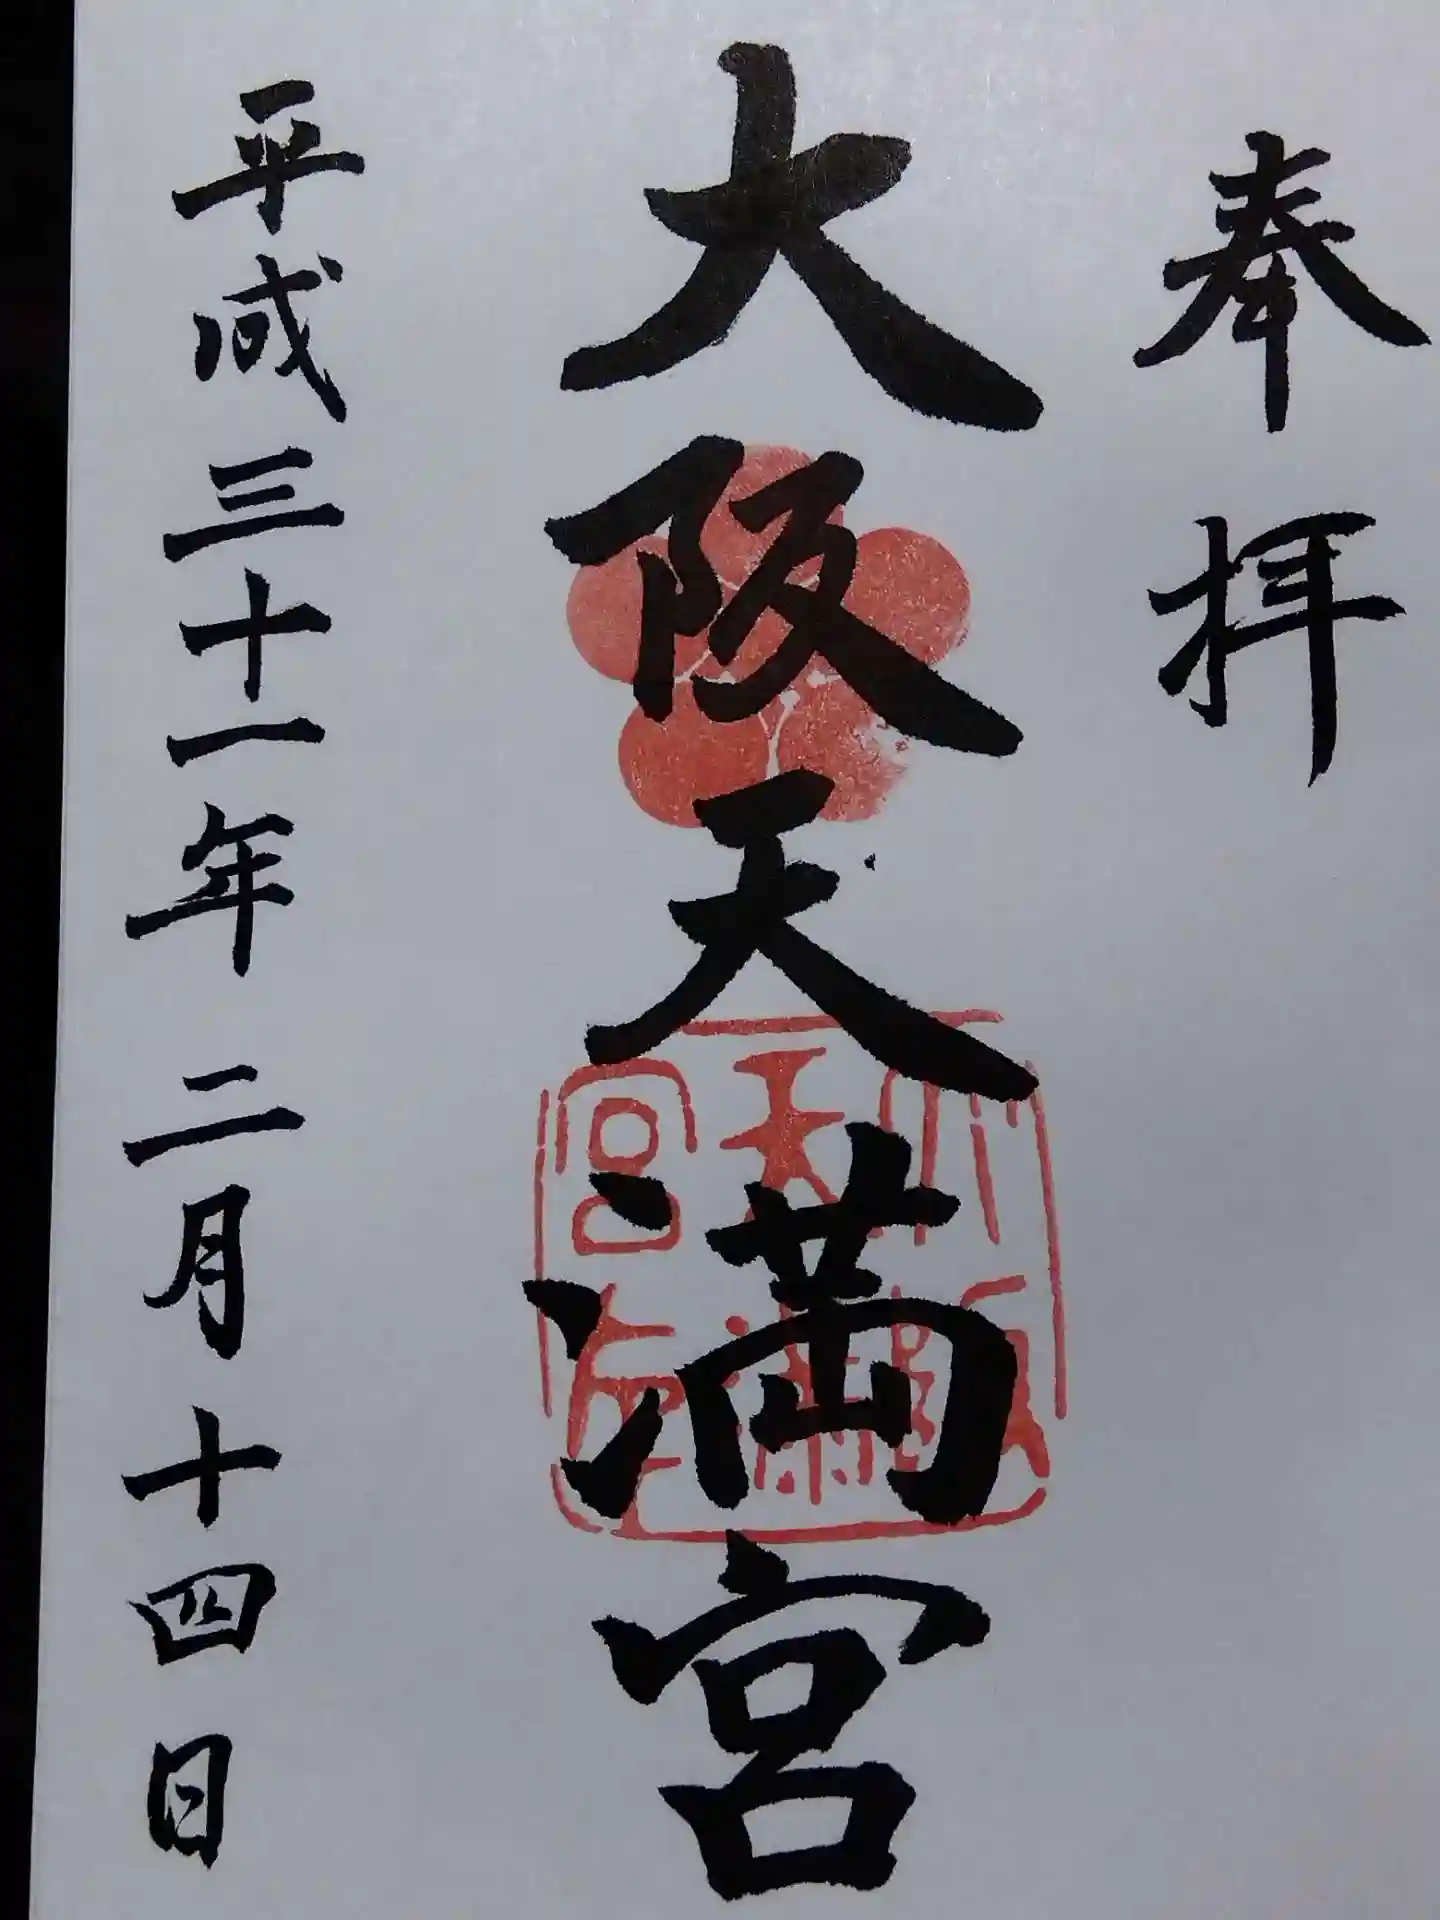 奉拝
大阪天満宮
平成三十一年二月十四日